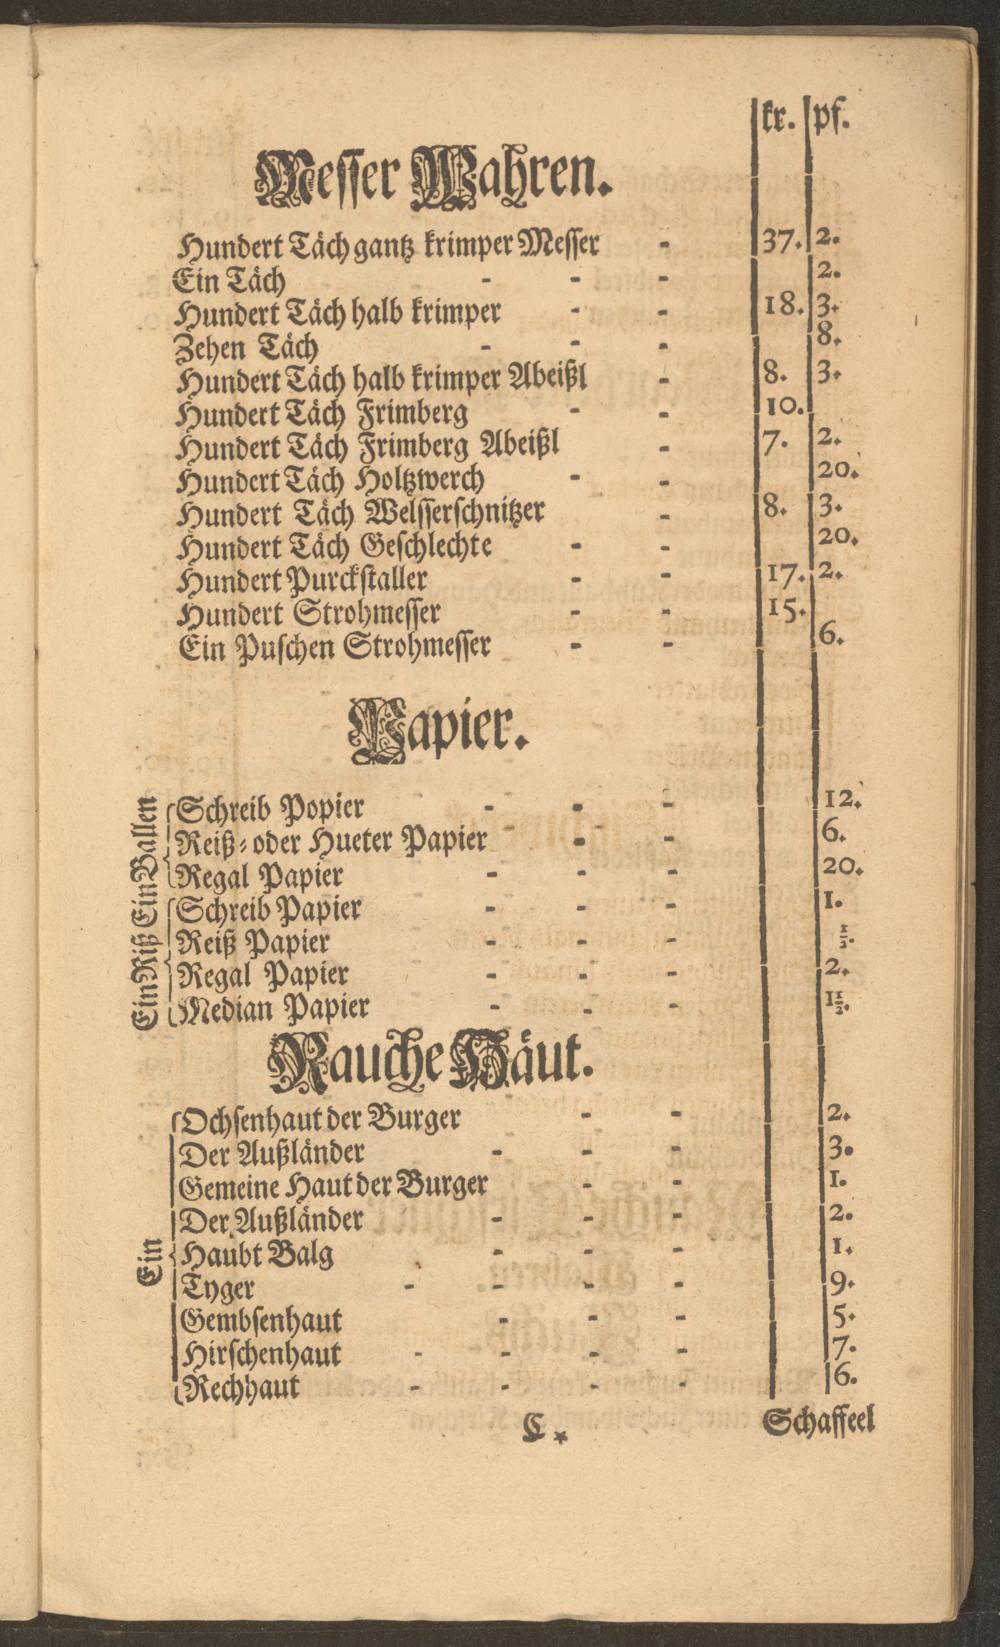 kr. pf.
Messer Wahren.
Hundert Täch gantz krimper Messer - 37. 2.
Ein Täch - - - 2.
Hundert Täch halb krimper - - 18. 3.
Zehen Täch - - - 8.
Hundert Täch halb krimper Abeißl - 8. 3.
Hundert Täch Frimberg - - 10.
Hundert Täch Frimberg Abeißl - 7. 2.
Hundert Täch Holtzwerch - - 20.
Hundert Täch Welsserschnitzer - 8. 3.
Hundert Täch Geschlechte - - 20.
Hundert Purckstaller - - 17. 2.
Hundert Strohmesser - - 15.
Ein Puschen Strohmesser - - 6.
Papier.
Ein Ballen
Schreib Popier - - - 12.
Reiß- oder Hueter Papier - - 6.
Regal Papier - - - 20.
Ein Riß
Schreib Papier - - - 1.
Reiß Papier - - - ½.
Regal Papier - - - 2.
Median Papier - - - 1½.
Rauche Häut.
Ein
Ochsenhaut der Burger - - 2.
Der Außländer - - - 3.
Gemeine Haut der Burger - - 1.
Der Außländer - - - 2.
Haubt Balg - - - 1.
Tyger - - - - 9.
Gembsenhaut - - - 5.
Hirschenhaut - - - - 7.
Rechhaut - - - - 6.
C* Schaffeel